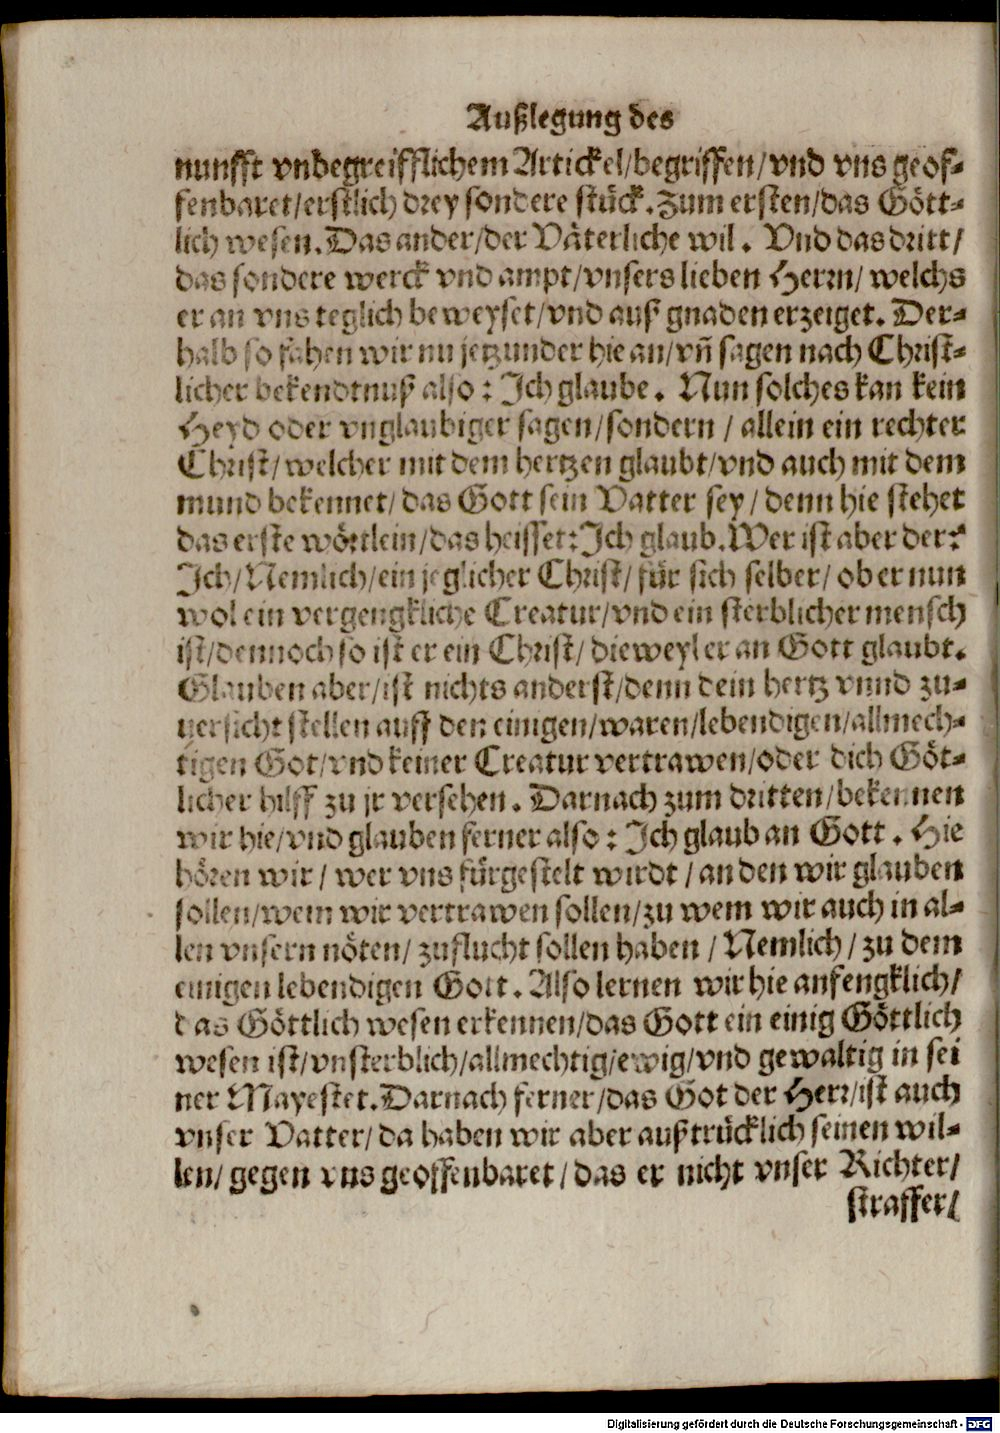 Außlegung des
nunfft vnbegreifflichem Artickel/begriffen/vnd vns geof-
fenbaret/erstlich drey sondere stück. Zum ersten/das Gött-
lich wesen. Das ander/der Väterliche wil. Vnd das dritt/
das sondere werck vnd ampt/vnsers lieben Herrn/ welchs
er an vns teglich beweyset/vnd auß gnaden erzeiget. Der-
halb so fahen wir nu jetzunder hie an/vñ sagen nach Christ-
licher bekendtnuß also: Ich glaube. Nun solches kan kein
Heyd oder vnglaubiger sagen/sondern / allein ein rechter
Christ/welcher mit dem hertzen glaubt/vnd auch mit dem
mund bekennet/das Gott sein Vatter sey/denn hie stehet
das erste wörtlein/das heisset: Ich glaub. Wer ist aber der?
Ich/Nemlich/ein jeglicher Christ/ für sich selber/ ob er nun
wol ein vergengkliche Creatur/vnd ein sterblicher mensch
ist/dennoch so ist er ein Christ/ dieweyl er an Gott glaubt.
Glauben aber/ist nichts anderst/denn dein hertz vnnd zu-
uersicht stellen auff den einigen/waren/lebendigen/allmech-
tigen Got/vnd keiner Creatur vertrawen/oder dich Göt-
licher hilff zu jr versehen. Darnach zum dritten/bekennen
wir hie/vnd glauben ferner also: Ich glaub an Gott. Hie
hören wir/ wer vns fürgestelt wirdt/an den wir glauben
sollen/wem wir vertrawen sollen/zu wem wir auch in al-
len vnsern nöten/ zuflucht sollen haben/Nemlich/zu dem
einigen lebendigen Gott. Also lernen wir hie anfengklich/
das Göttlich wesen erkennen/das Gott ein einig Göttlich
wesen ist/vnsterblich/allmechtig/ewig/vnd gewaltig in sei
ner Mayestet. Darnach ferner/das Got der Herr/ist auch
vnser Vatter/da haben wir aber außtrücklich seinen wil-
len/gegen vns geoffenbaret/das er nicht vnser Richter/
straffer/
Digitalisierung gefördert durch die Deutsche Forschungsgemeinschaft - DFG